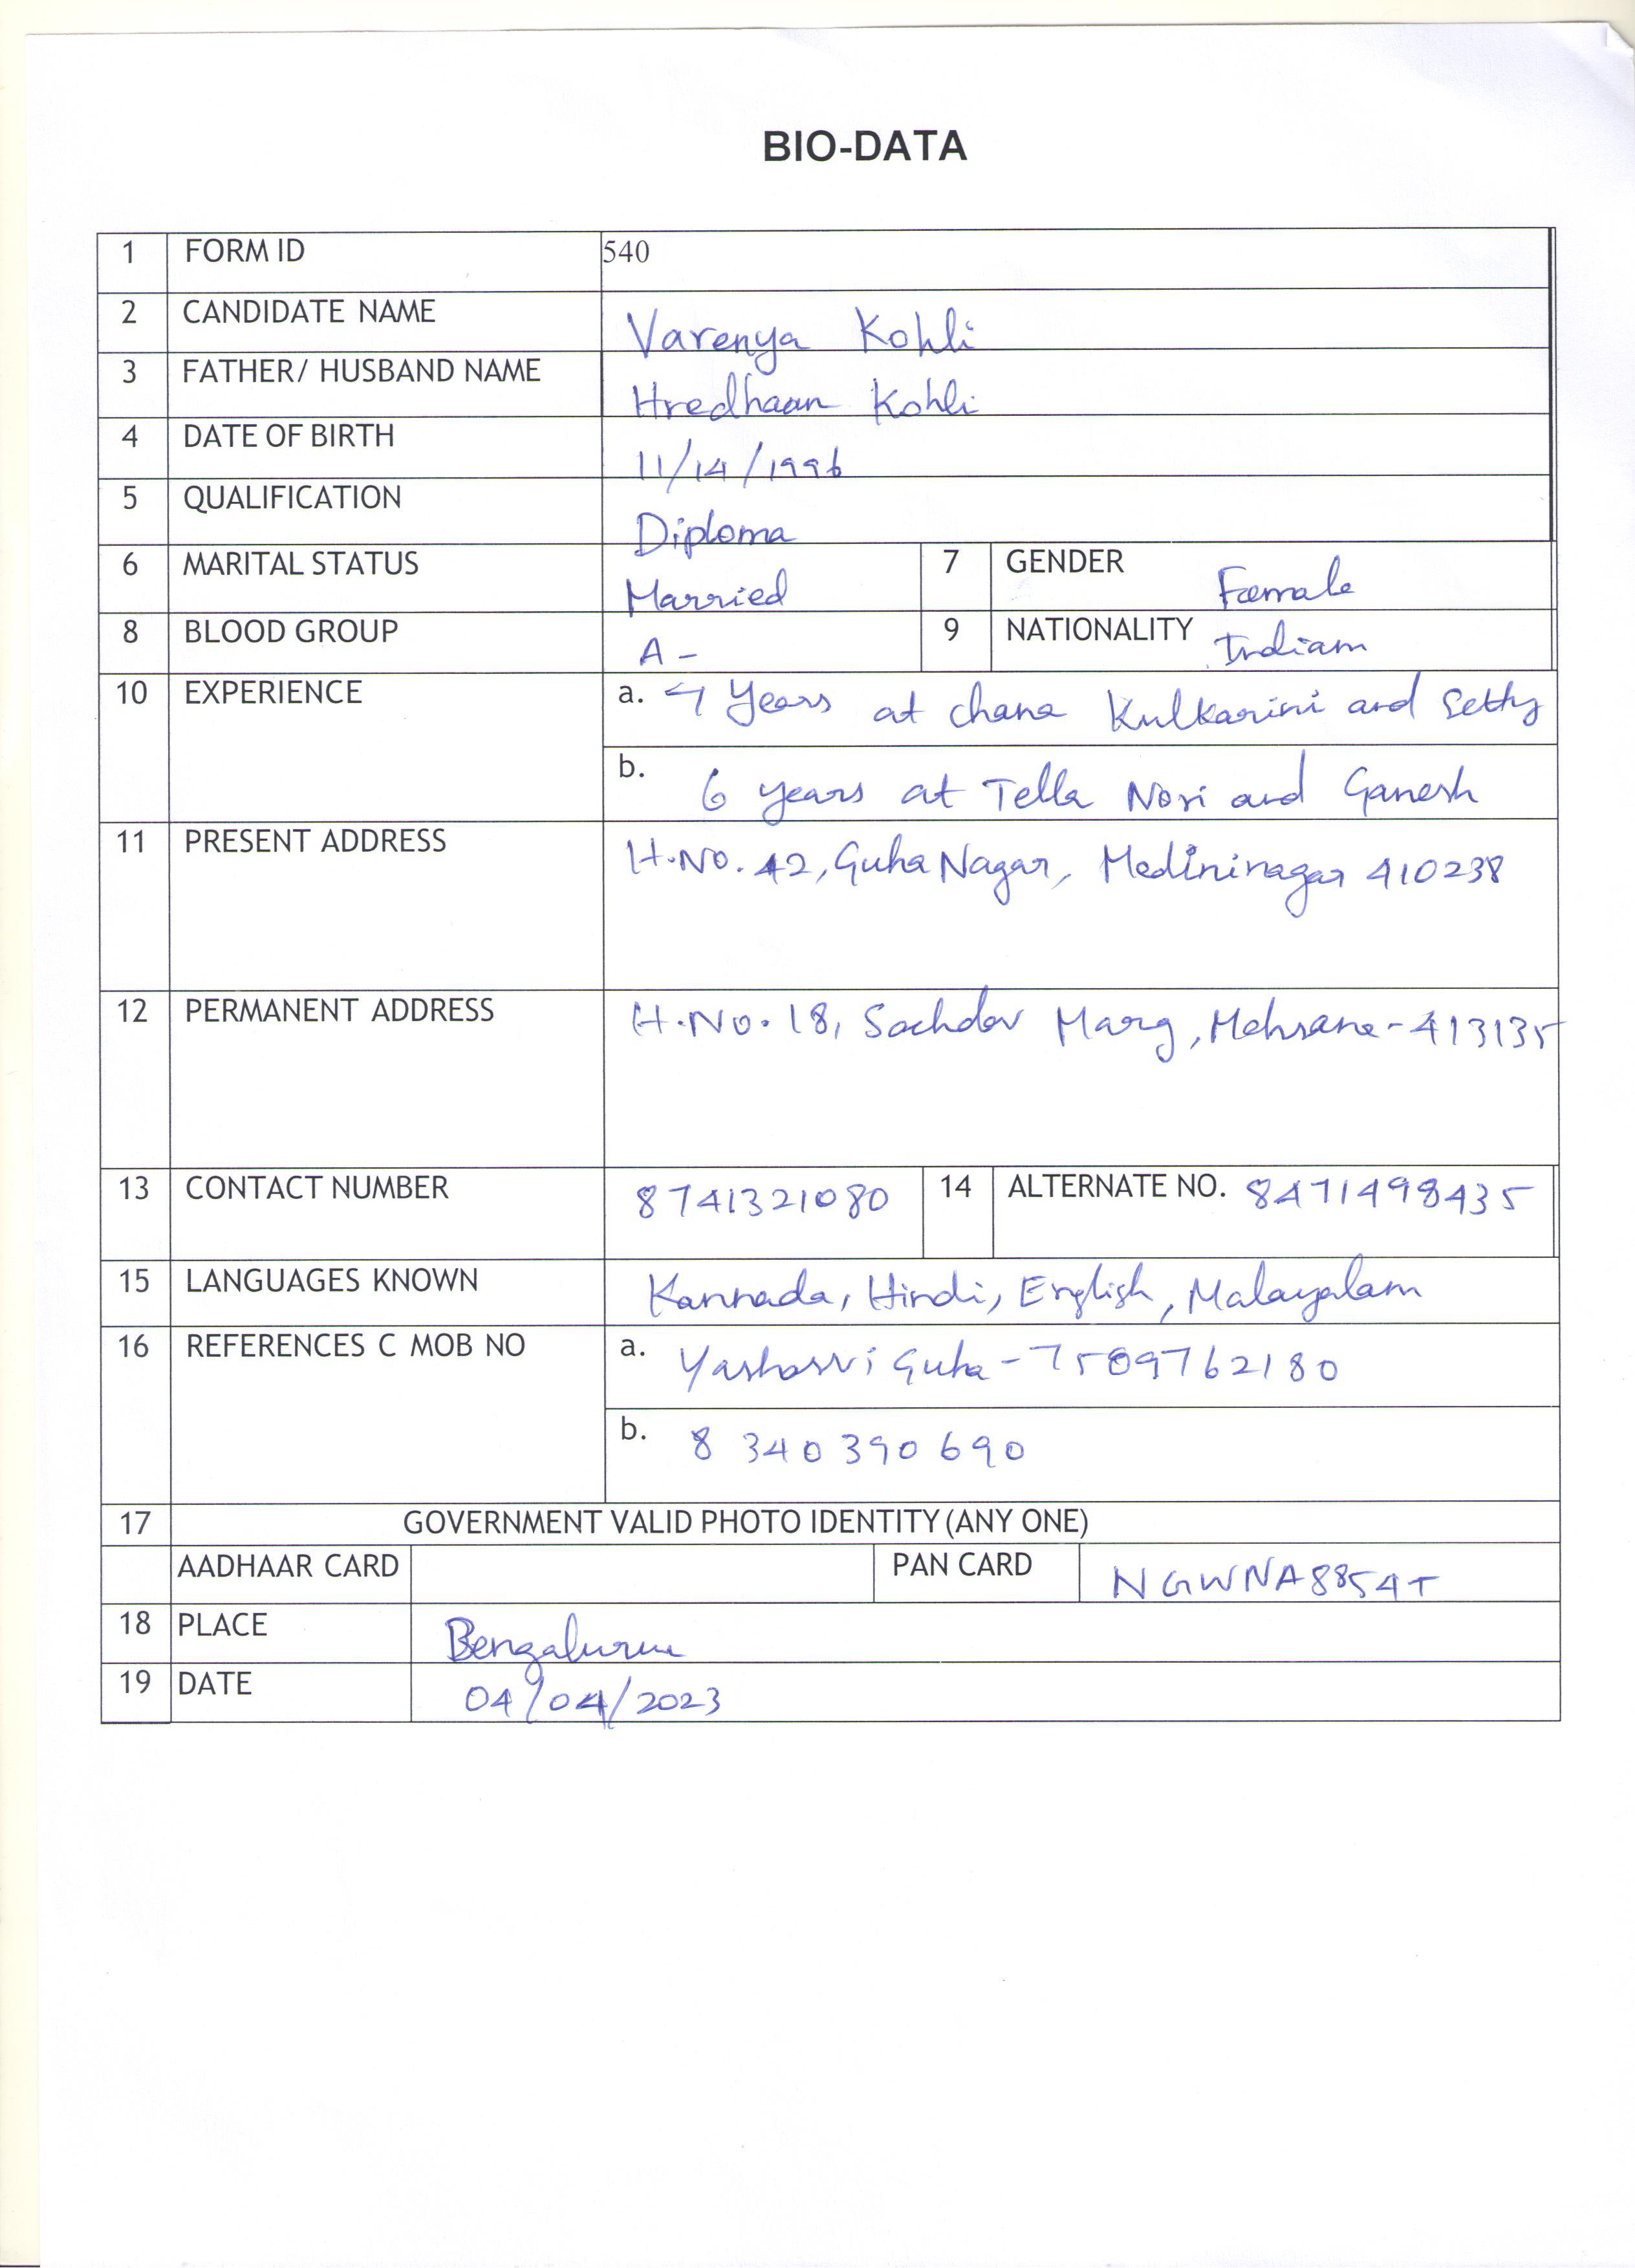 BIO-DATA
1 FORM ID 540
2 CANDIDATE NAME Varenya Kohli
3 FATHER/ HUSBAND NAME Hredhaan Kohli
4 DATE OF BIRTH 11/14/1996
5 QUALIFICATION Diploma
6 MARITAL STATUS Married 7 GENDER Female
8 BLOOD GROUP A- 9 NATIONALITY Indian
10 EXPERIENCE a. 4 Years at chana Kulkarini and Setty
b. 6 years at Tella Nori and Ganesh
11 PRESENT ADDRESS H.No. 42, Guha Nagar, Medininagar 410238
12 PERMANENT ADDRESS H.No. 18, Sachdev Marg, Mehsana-413135
13 CONTACT NUMBER 8741321080 14 ALTERNATE NO. 8471498435
15 LANGUAGES KNOWN Kannada, Hindi, English, Malayalam
16 REFERENCES C MOB NO a. Yashasvi Guha - 7509762180
b. 8340390690
17 GOVERNMENT VALID PHOTO IDENTITY (ANY ONE)
AADHAAR CARD PAN CARD NGWNA8854T
18 PLACE Bengaluru
19 DATE 04/04/2023